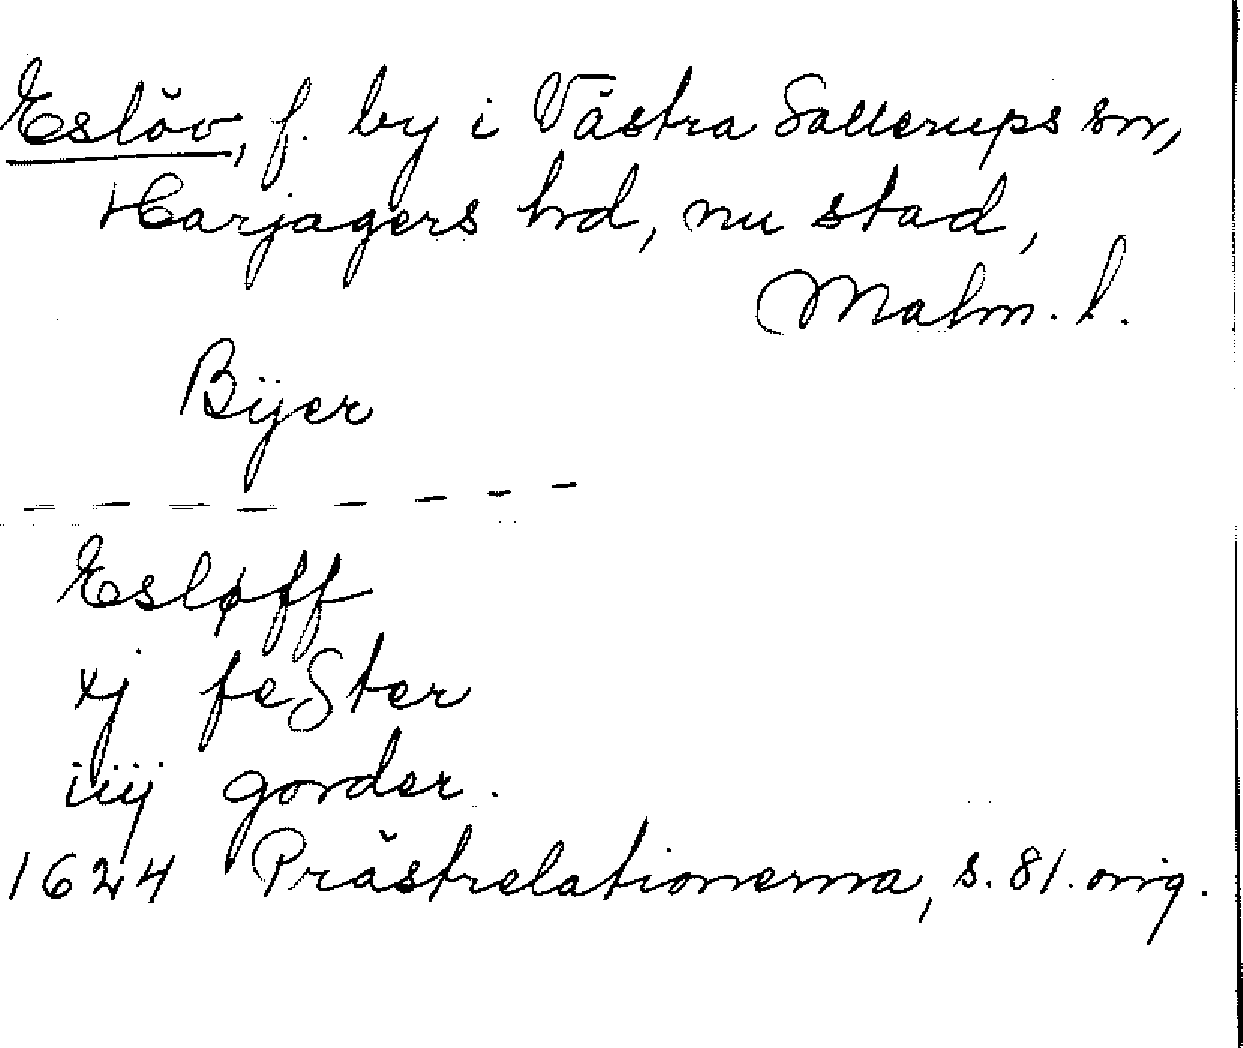 Eslöv, f. by i Västra Sallerups sn,
Harjagers hd, nu stad,
Malm. l.
Bÿer
– – – – – – – –
Esløff
xj feSter
iiij gorder.
1624 Prästrelationerna, s. 81. orig.